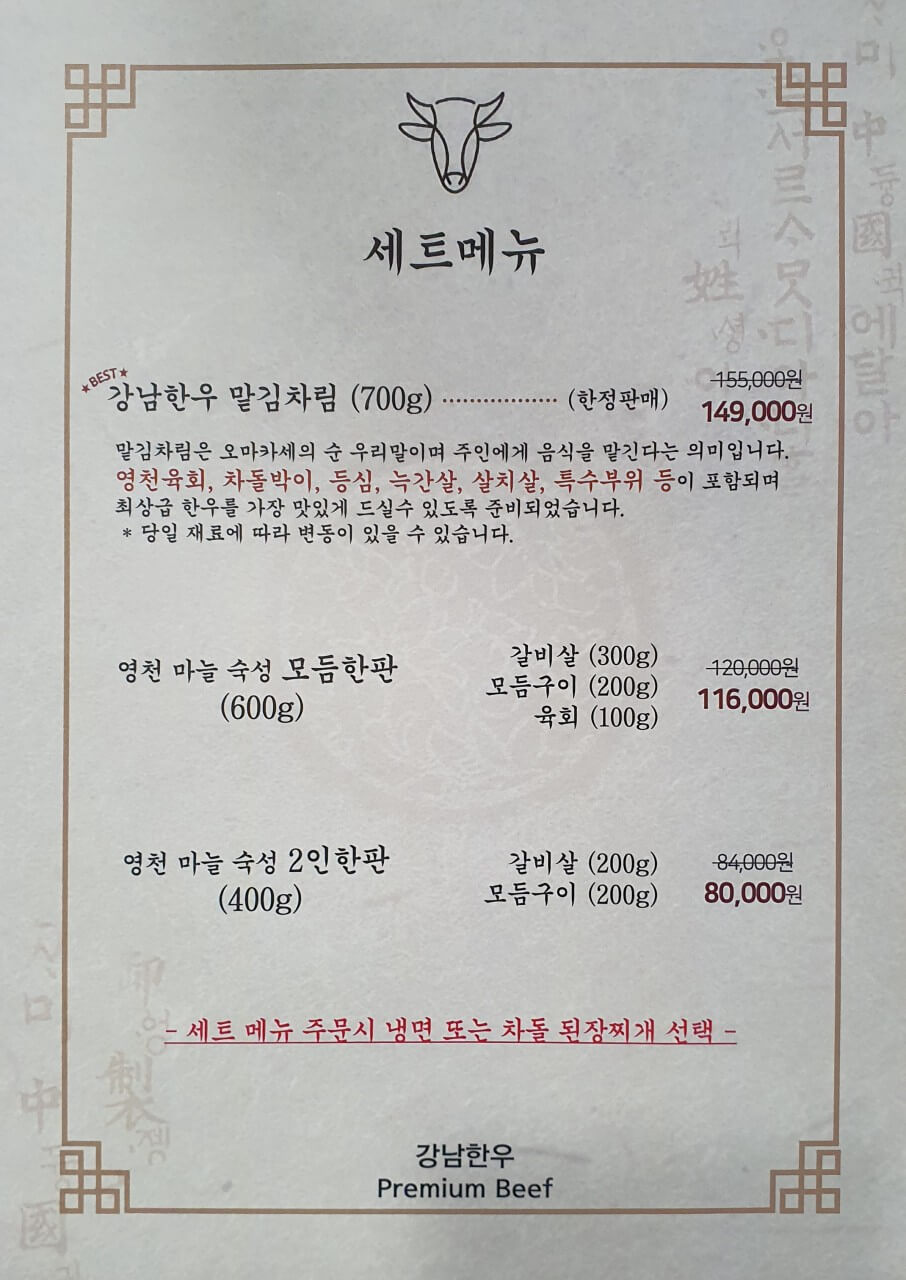 세트메뉴
★BEST★
강남한우 맡김차림 (700g) ................. (한정판매)
155,000원
149,000원
맡김차림은 오마카세의 순 우리말이며 주인에게 음식을 맡긴다는 의미입니다.
영천육회, 차돌박이, 등심, 늑간살, 살치살, 특수부위 등이 포함되며
최상급 한우를 가장 맛있게 드실수 있도록 준비되었습니다.
* 당일 재료에 따라 변동이 있을 수 있습니다.
영천 마늘 숙성 모듬한판
(600g)
갈비살 (300g)
모듬구이 (200g)
육회 (100g)
120,000원
116,000원
영천 마늘 숙성 2인한판
(400g)
갈비살 (200g)
모듬구이 (200g)
84,000원
80,000원
- 세트 메뉴 주문시 냉면 또는 차돌 된장찌개 선택 -
강남한우
Premium Beef